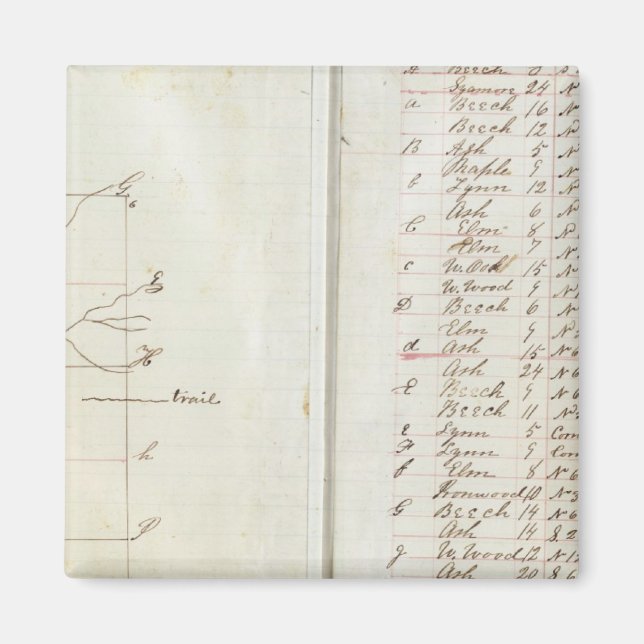 G
6
E
H
trail
h
I
A Beech 8
Sycamore 24 N
a Beech 16 N
Beech 12 N
B Ash 5 N
Maple 9 N
b Lynn 12 N
Ash 6 N
C Elm 8 N
Elm 7 N
c W. Oak 15 N
W. Wood 9
D Beech 6 N
Elm 9 N
d Ash 15 N 6
Ash 24 N 6
E Beech 9 N 6
Beech 11 N
e Lynn 5 Corn
F Lynn 9 Corn
f Elm 8 N 6
Ironwood 10 N 3
G Beech 14 N 6
Ash 14 S 2
g W. Wood 12 N 12
Ash 20 S 6